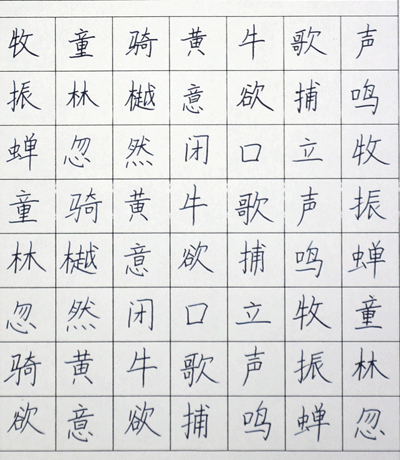 牧童骑黄牛歌声
振林樾意欲捕鸣
蝉忽然闭口立牧
童骑黄牛歌声振
林樾意欲捕鸣蝉
忽然闭口立牧童
骑黄牛歌声振林
欲意欲捕鸣蝉忽